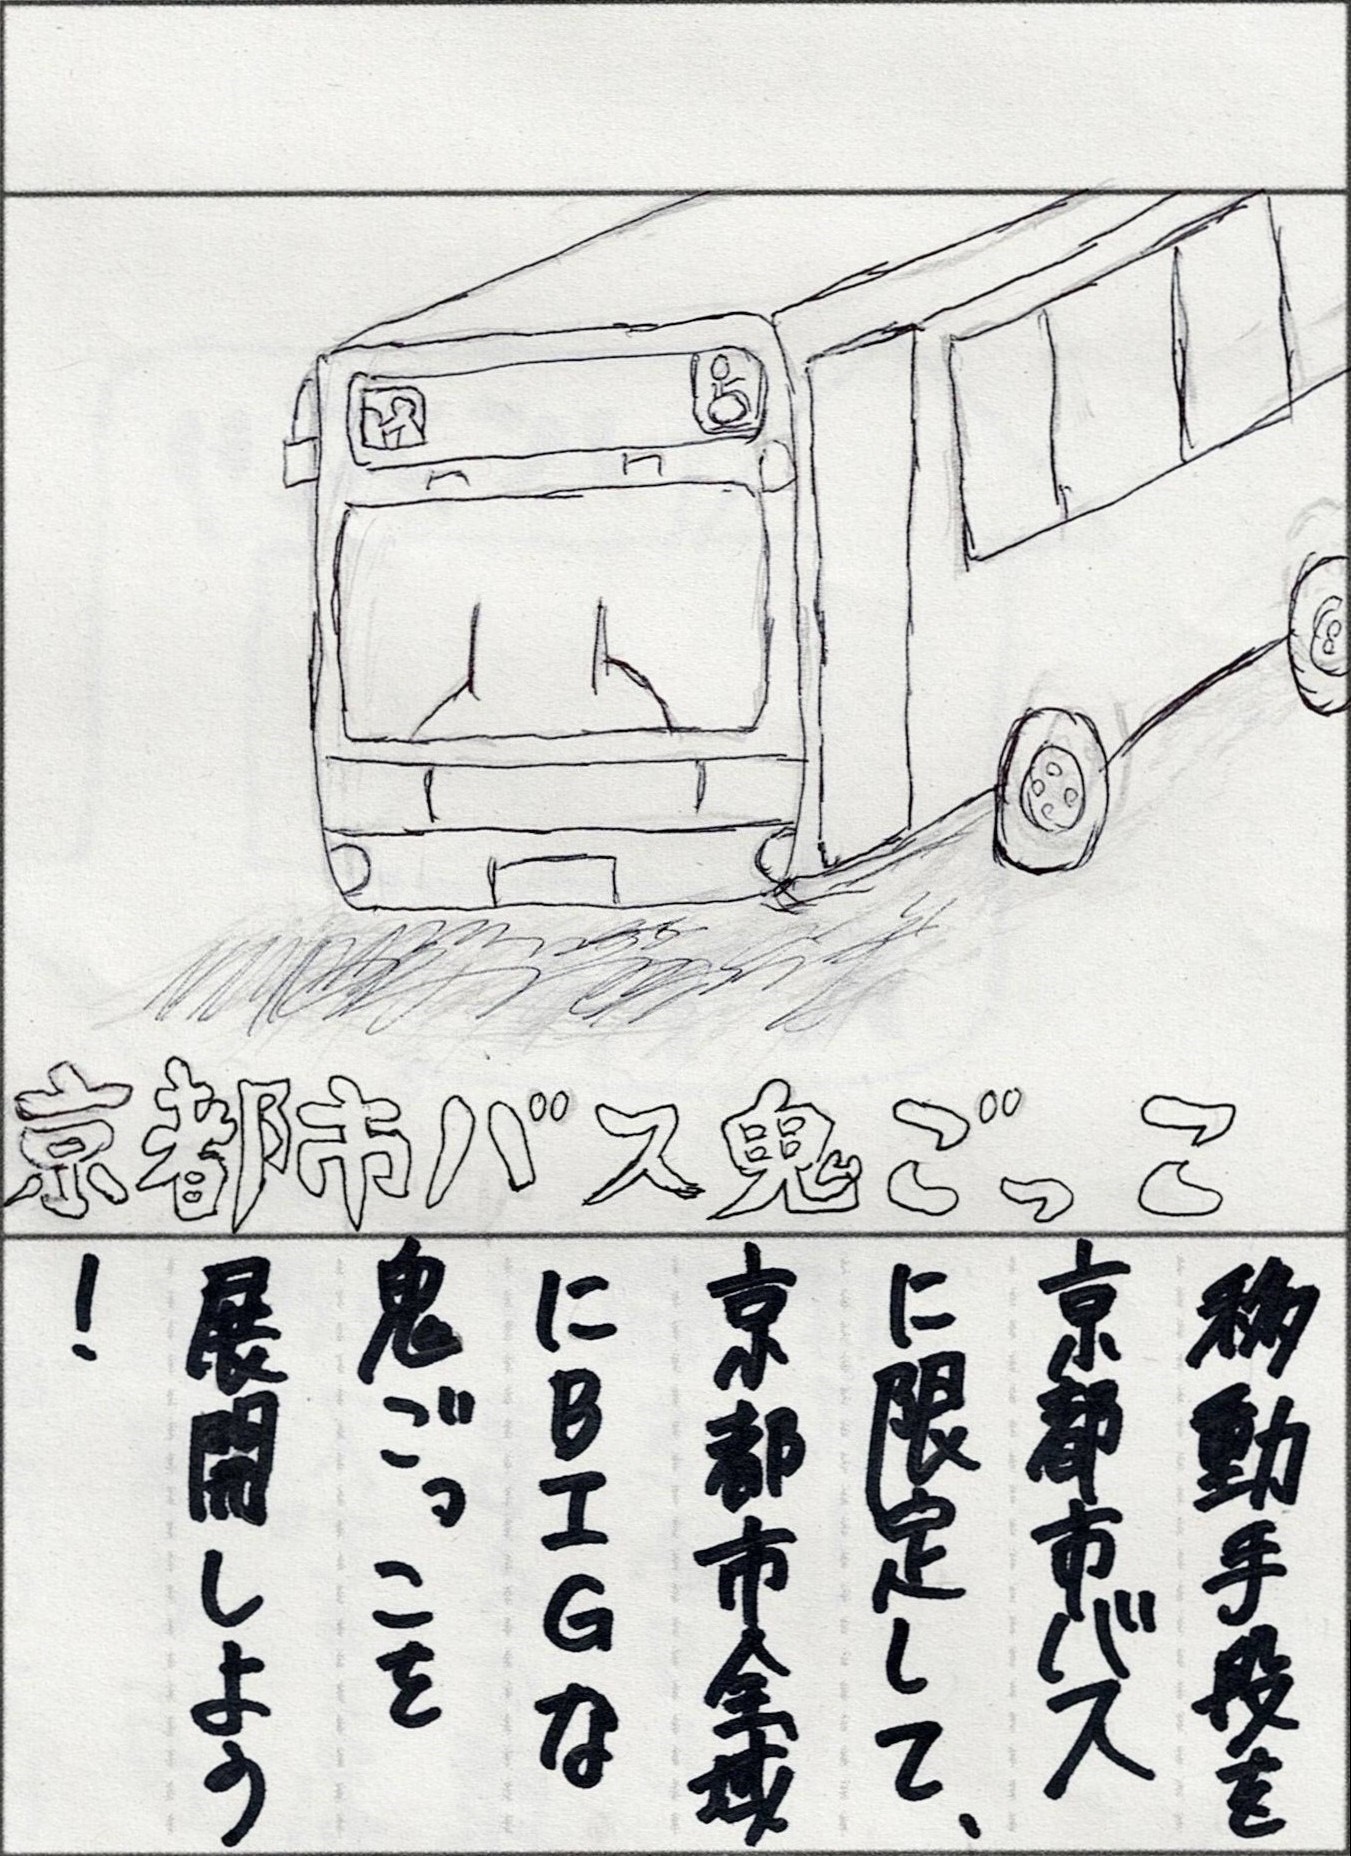 京都市バス鬼ごっこ
移動手段を
京都市バス
に限定して、
京都市全域
にBIGな
鬼ごっこを
展開しよう
！